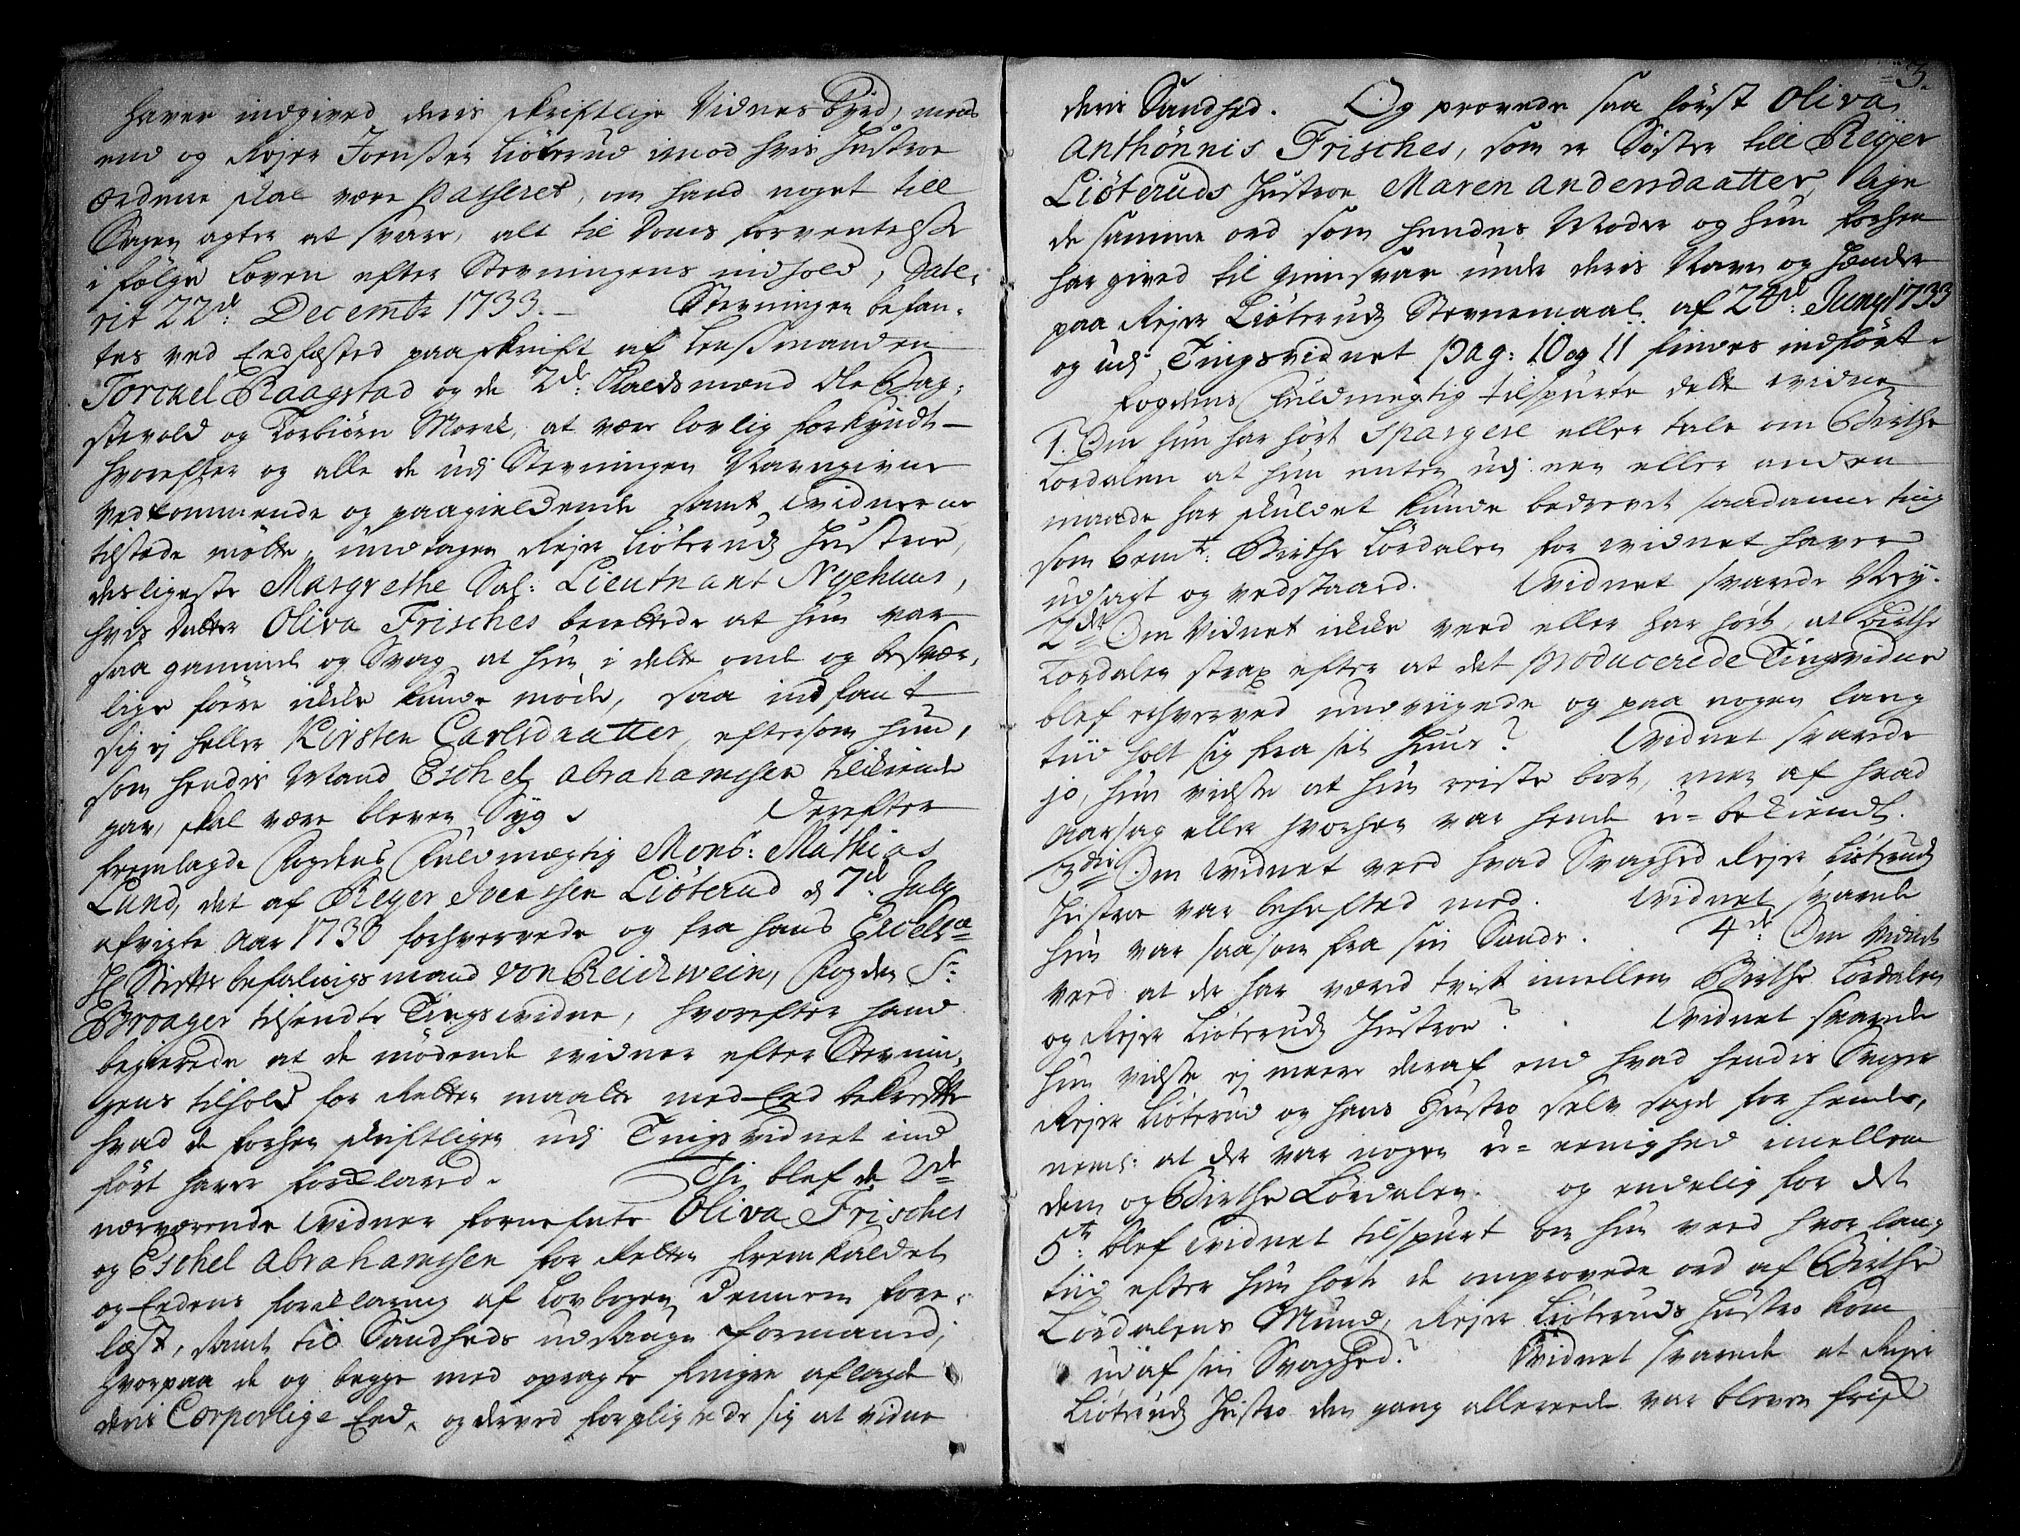 haver indgived deris skriftlige Vidnes Byrd,
end og Rejer Joensen Liøterud imod hvis Hustroe
Ordene skal være passeret, om hand noget till
Sagen agter at svare, alt til Doms forventelse
i følge Loven efter Stevningens indhold, Date-
rit 22d: Decembr 1733. Stevningen befan-
tes ved Eedfæsted paaskrift af Lensmanden
Torckel Raagstad og de 2de: Ole
og Torbiørn Moen, at være lovlig forkyndt
hvorefter og alle de udj Stevningen Navngivne
Vedkommende og paagieldende samt vidnerne
tilstæde mødte, undtagen Rejer Liøteruds Hustroe,
desligeste Margrethe Sal: Lieutnant Nyehuus,
hvis Datter Oliva Frisches berettede at hun var
saa gammel og Svag at hun i dette onde og besvær-
lige føre ikke kunde møde, saa indfant
sig ej heller Kirsten Carlsdaatter, eftersom hun,
som hendis Mand Eschel Abrahamsen tilkiende
gav, skal være bleven Syg. Derefter
fremlagde Fogdens Fuldmægtig Monsr: Mathias
Lund, det af Reyer Joenssen Liøterud d 7de: July
afvigte Aar 1733 forhvervede og fra hans Excellce
H: Stiftsbefalingsmand von Reichwein, Fogden Sr:
Broager tilsendte Tingsvidne, hvorefter hand
begierede at de mødende vidner efter Stevnin-
gens tilhold for Retten maatte med Eed bekræfte
hvad de forhen skriftligen udj Tingsvidnet ind
ført haver forklaret. Thi blef de 2de
nærværende vidner fornefnte Oliva Frisches
og Eschel Abrahamssen for Retten fremkaldet
og Eedens forklaring af Lovbogen dennem fore-
læst, samt til Sandheds udsaugn formaned,
hvorpaa de og begge med opragte fingre aflagde
deris Corporlige Eed, og derved forpligtede sig at vidne
3.
deris Sandhed. Og provede saa først Oliva
Anthønnis Frisches, som er Søster till Reyer
Liøteruds Hustroe Maren Andersdaatter, lige
de samme ord som hendes Moder og hun forhen
har gived til giensvar under deris Navn og Hænder
paa Rejer Liøteruds Stevnemaal af 24de: Juny 1733
og udj Tingsvidnet pag: 10 og 11 findes indført.
Fogdens Fuldmegtig tilspurte dette vidne
1. Om hun har hørt Spargere eller tale om Birthe
Lørdalen at hun enten udj een eller anden
maade har skuldet kunde bedrevet saadanne ting
som bemt: Birthe Lørdalen for vidnet haver
udsagt og vedstaaed. Vidnet svarede Ney.
2de Om Vidnet ikke veed eller har hørt, at Birthe
Lørdalen strax efter at det producerede Tingsvidne
blef erhverved undvigede og paa nogen lang
tiid holt sig fra sit Huus? Vidnet svarede
jo, hun vidste at hun reiste bort, men af hvad
Aarsag eller hvorhen var hende u-bekiendt.
3die Om Vidnet veed hvad Svaghed Rejer Liøteruds
Hustroe var behefted med. Vidnet svarede
hun var saasom fra sin Sands. 4de: Om Vidnet
veed at der har været tvist imellem Birthe Lørdalen
og Rejer Liøteruds Hustroe? Vidnet svarede
hun vidste ej meere deraf end hvad hendis Svoger
Rejer Liøterud og hans Hustro selv sagde for hende,
neml: at der var nogen u-eenighed imellem
dem og Birthe Lørdalen. og endelig for det
5te: blef vidnet tilspurt om hun veed hvor lang
tiid efter hun hørte de omprovede ord af Birthe
Lørdalens Mund, Rejer Liøteruds Hustro kom
ud af sin Svaghed? Vidnet svarede at Rejer
Liøteruds Hustro den gang allereede var bleven frisk